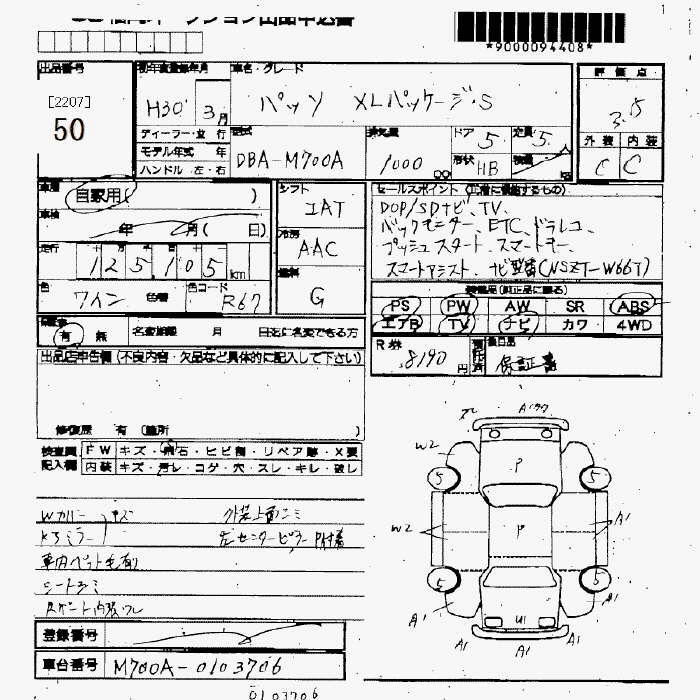 *9000094408*
出品番号
[2207]
50
初年度登録年月
H30 3月
車名・グレード
パッソ XLパッケージ・S
評価点
3.5
外装 内装
C C
ディーラー・並行
モデル年式 年
ハンドル 左・右
型式
DBA-M700A
排気量
1000 cc
ドア 5
形状 HB
定員 5
車歴
自家用( )
車検
年 月( 日)
走行
125,105km
色
ワイン
色替
色コード
R67
シフト
IAT
冷房
AAC
燃料
G
セールスポイント
DOP/SDナビ、TV、
バックモニター、ETC、ドラレコ、
プッシュスタート、スマートキー、
スマートアシスト、ナビ型番(NSZT-W66T)
PS PW AW SR ABS
エアB TV ナビ カワ 4WD
有 無 名変期限 月 日迄に名変できる方
R券
8190円
後日品
保証書
出品店申告欄(不良内容・欠品など具体的に記入して下さい)
修復歴 有 (箇所 )
検査員 FW キズ・飛石・ヒビ割・リペア跡・X要
記入欄 内装 キズ・汚レ・コゲ・穴・スレ・キレ・破レ
Wカバー キズ
Kミラー
外装上面シミ
左センターピラーP付着
車内ペット毛有り
シートシミ
登録番号
車台番号 M700A-0103706
0103706
A1 W2 P 5 5
W2 P A1
5 5 A1
A1 U1 A1 A1 A1